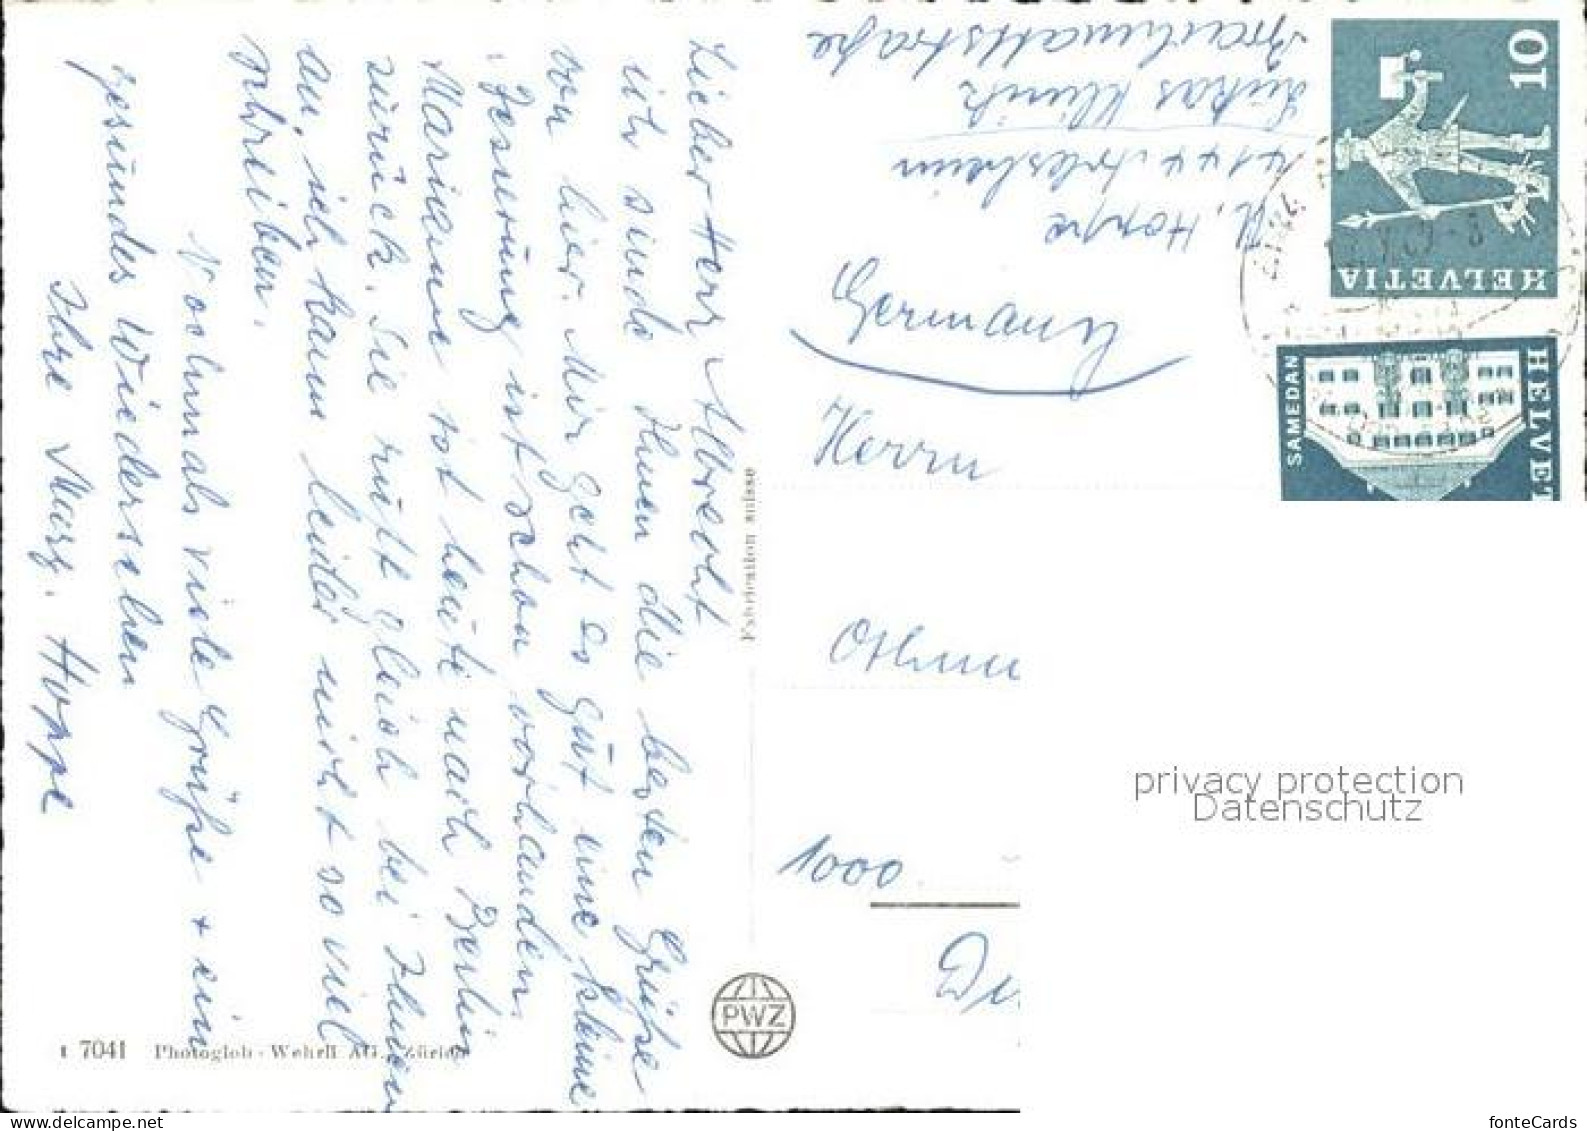 Lieber Herr Albrecht
ich sende Ihnen die besten Grüße
von hier. Mir geht es gut eine kleine
Besserung ist schon vorhanden.
Marianne ist heute nach Berlin
zurück. Sie ruft gleich bei Ihnen
an, ich kann leider nicht so viel
schreiben.
Nochmals viele Grüße + ein
gesundes Wiedersehen
Ihre Marg. Hoppe
t 7041 Photoglob-Wehrli AG., Zürich
Fabrication suisse
PWZ
M. Hoppe
4144 Arlesheim
Lukas Klinik
Brachmattstraße
Germany
Herrn
Othm
1000
10
HELVETIA
SAMEDAN
HELVET
privacy protection
Datenschutz
fonteCards